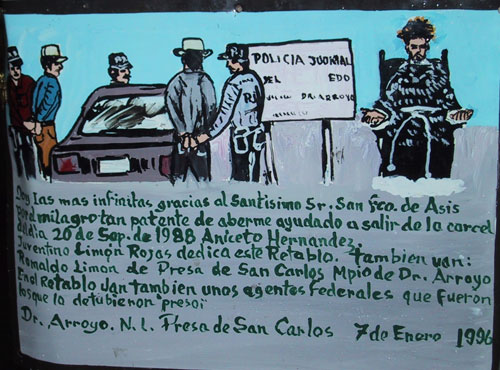 POLICIA JUDICIAL
DEL EDO
DR. ARROYO
Doy las mas infinitas gracias al Santisimo Sr. San Fco. de Asis
por el milagro tan patente de aberme ayudado a salir de la carcel
el dia 20 de Sep. de 1988 Aniceto Hernandez.
Juventino Limón Rojas dedica este Retablo. Tambien van:
Romaldo Limon de Presa de San Carlos Mpio de Dr. Arroyo
En el Retablo van tambien unos agentes Federales que fueron
los que lo detubieron "preso"
Dr. Arroyo. N. L. Presa de San Carlos 7 de Enero 1996